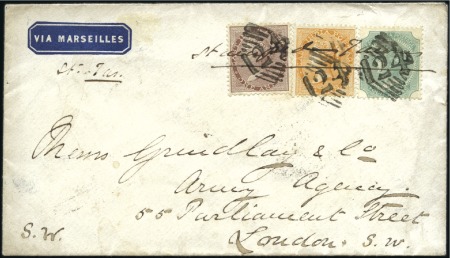 VIA MARSEILLES
124 124 124
Messrs Grindlay & Co
Army Agency
55 Parliament Street
S.W. London. S.W.